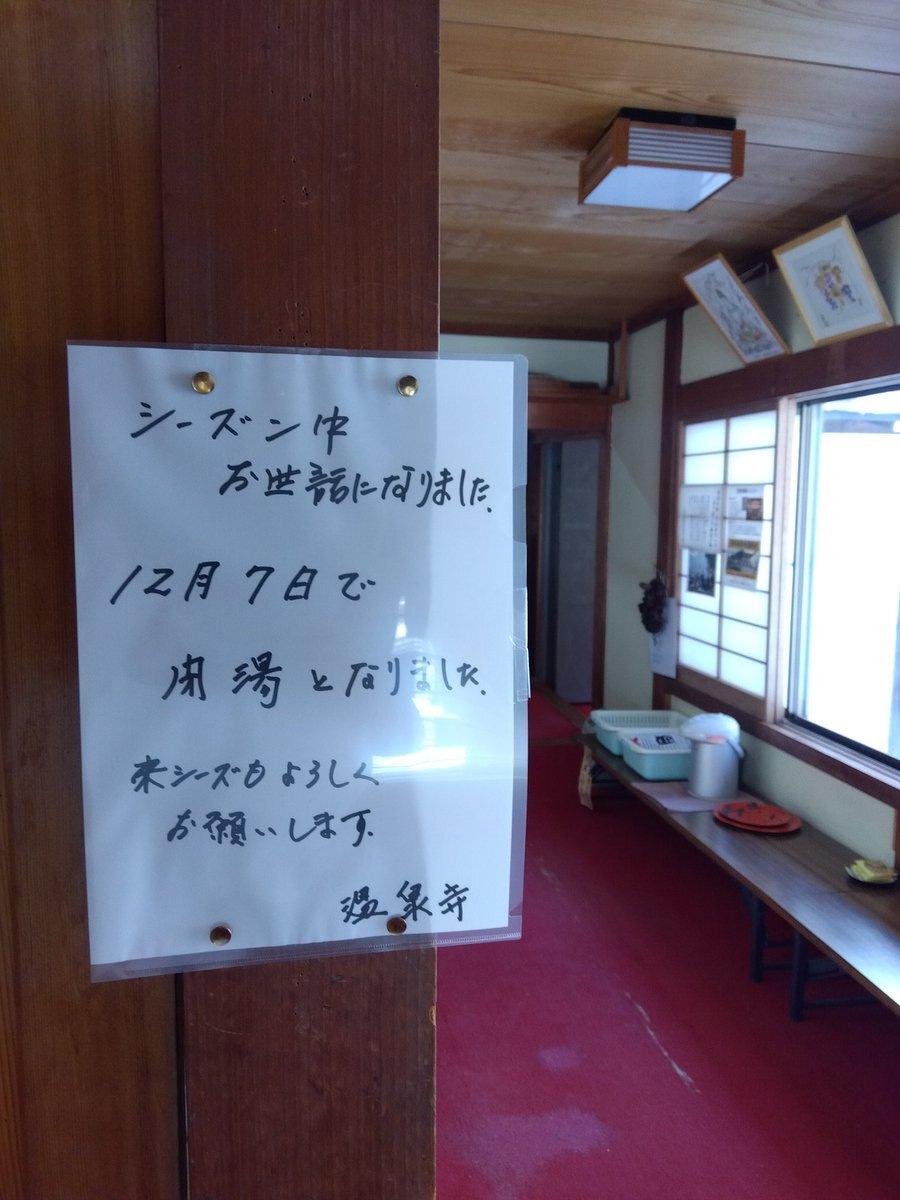 シーズン中
お世話になりました。
12月7日で
閉湯となりました。
来シーズもよろしく
お願いします。
温泉寺